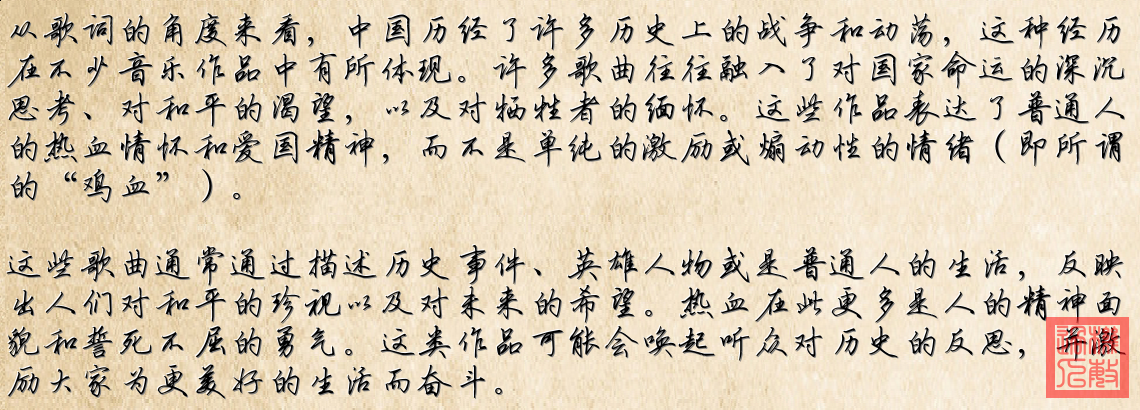 从歌词的角度来看，中国历经了许多历史上的战争和动荡，这种经历
在不少音乐作品中有所体现。许多歌曲往往融入了对国家命运的深沉
思考、对和平的渴望，以及对牺牲者的缅怀。这些作品表达了普通人
的热血情怀和爱国精神，而不是单纯的激励或煽动性的情绪（即所谓
的“鸡血”）。
这些歌曲通常通过描述历史事件、英雄人物或是普通人的生活，反映
出人们对和平的珍视以及对未来的希望。热血在此更多是人的精神面
貌和誓死不屈的勇气。这类作品可能会唤起听众对历史的反思，并激
励大家为更美好的生活而奋斗。